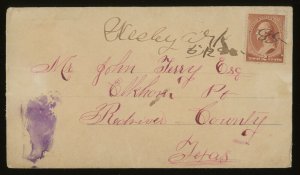 Wesley
Mr John Terry Esq
Elkhorn Po
Redriver County
Texas